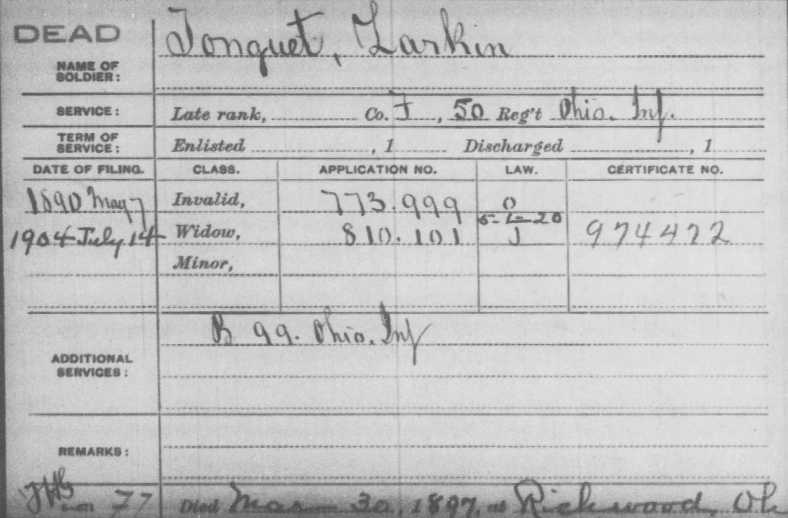 DEAD
NAME OF SOLDIER: Tonguet, Larkin
SERVICE: Late rank, Co. F, 50 Reg't Ohio. Inf.
TERM OF SERVICE: Enlisted , 1 Discharged , 1
DATE OF FILING. CLASS. APPLICATION NO. LAW. CERTIFICATE NO.
1890 May 7 Invalid, 773.999 O
1904 July 14 Widow, 810.101 J 974422
Minor,
ADDITIONAL SERVICES: B 99. Ohio. Inf
REMARKS:
77 Died Mar 30, 1897, at Richwood, Oh